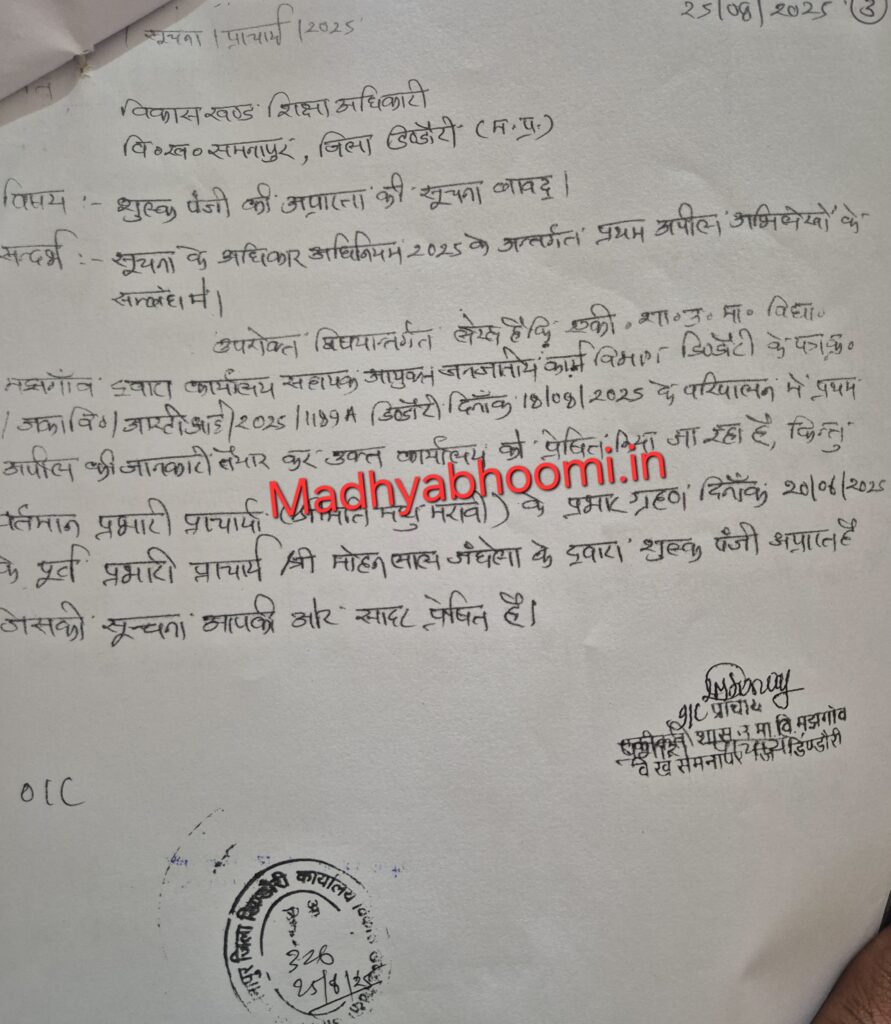 25/08/2025 (3)
/ सूचना / प्राचार्य /2025
विकास खण्ड शिक्षा अधिकारी
वि०ख० समनापुर, जिला डिण्डौरी (म.प्र.)
विषय :- शुल्क पंजी की अप्राप्ता की सूचना बावद् ।
सन्दर्भ :- सूचना के अधिकार अधिनियम 2025 के अन्तर्गत प्रथम अपील अभिलेखों के
सम्बंध में।
उपरोक्त विषयान्तर्गत लेख है कि एकी. शा. उ. मा. विद्या.
मझगाँव द्वारा कार्यालय सहायक आयुक्त जनजातीय कार्य विभाग डिण्डौरी के पत्र क्र.
/ जकावि०/आरटीआई/2025/1189A डिण्डौरी दिनाँक 18/08/2025 के परिपालन में प्रथम
अपील की जानकारी तैयार कर उक्त कार्यालय को प्रेषित किया जा रहा है, किन्तु
वर्तमान प्रभारी प्राचार्या (श्रीमति मधु मरावी) के प्रभार ग्रहण दिनाँक 20/06/2025
के पूर्व प्रभारी प्राचार्य श्री मोहन लाल जंघेला के द्वारा शुल्क पंजी अप्राप्त है
जिसकी सूचना आपकी ओर सादर प्रेषित है।
Madhyabhoomi.in
I/C प्राचार्य
शास. उ मा वि. मझगाँव
वि ख समनापुर डिण्डौरी
OIC
जिला डिण्डौरी कार्यालय विकास
326
25/8/25